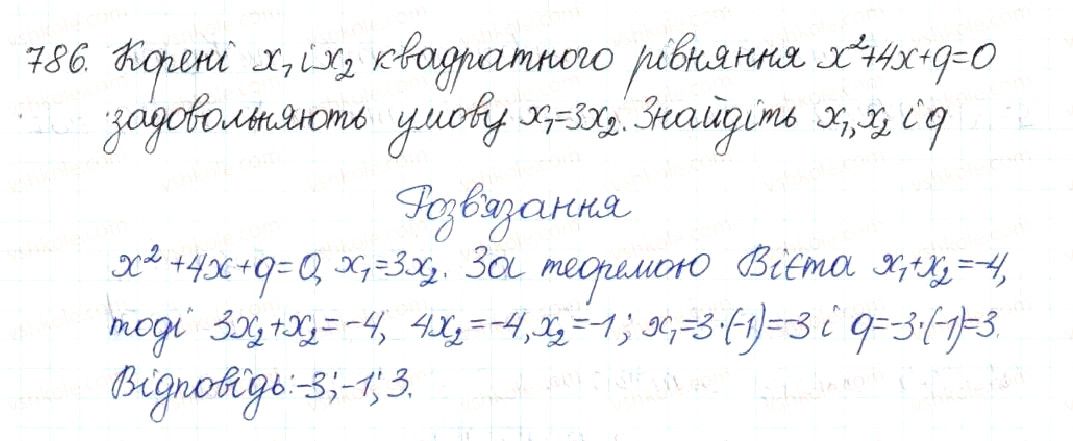 786. Корені x₁ і x₂ квадратного рівняння x²+4x+q=0
задовольняють умову x₁=3x₂. Знайдіть x₁, x₂ і q
Розв'язання
x²+4x+q=0, x₁=3x₂. За теоремою Вієта x₁+x₂=-4,
тоді 3x₂+x₂=-4, 4x₂=-4, x₂=-1; x₁=3·(-1)=-3 і q=-3·(-1)=3.
Відповідь:-3;-1;3.